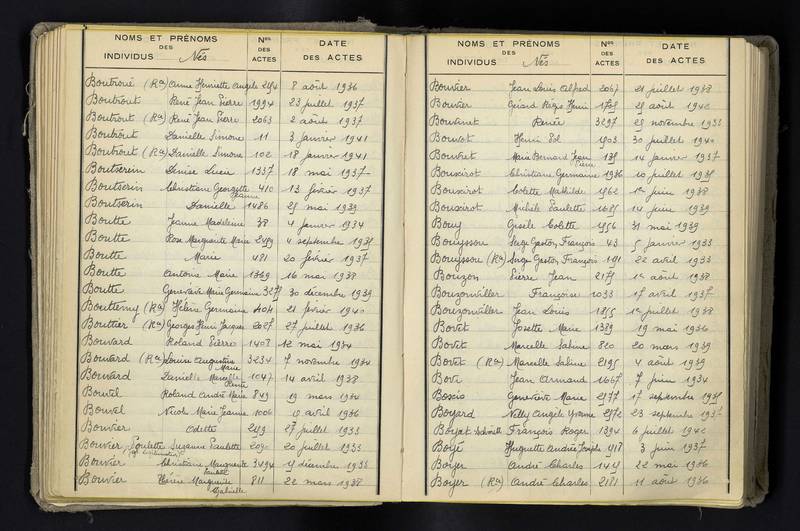 NOMS ET PRÉNOMS
DES
INDIVIDUS Nés
Nos
DES
ACTES
DATE
DES ACTES
Boutroué (Ra) Anne Henriette Angèle 2454 8 août 1936
Boutrout René Jean Pierre 1994 23 juillet 1937
Boutrout (Ra) René Jean Pierre 2063 2 août 1937
Boutrout Danielle Simone 11 3 janvier 1941
Boutrout (Ra) Danielle Simone 102 18 janvier 1941
Boutserin Denise Lucie 1337 18 mai 1937
Boutserin Christiane Georgette 410 13 février 1937
Jeanne
Boutserin Danielle 1486 25 mai 1939
Boutte Jeanne Madeleine 38 4 janvier 1934
Boutte Rose Marguerite Marie 4 septembre 1935
Boutte Marie 481 20 février 1937
Boutte Antoine Marie 1369 16 mai 1938
Boutte Geneviève Marie Germaine 30 décembre 1939
Bouttemy (Ra) Hélène Germaine 404 21 février 1940
Bouttier (Ra) Georges Henri Jacques 2027 27 juillet 1936
Bouvard Roland Pierre 1408 12 mai 1934
Bouvard (Ra) Louise Augustine 3234 7 novembre 1934
Marie
Bouvard Danielle Marcelle 1047 14 avril 1938
Renée
Bouvel Roland André Marie 849 19 mars 1934
Bouvel Nicole Marie Jeanne 1006 10 avril 1936
Bouvier Odette 27 juillet 1933
Bouvier Paulette Suzanne Paulette 20 juillet 1933
Bouvier Christiane Marguerite 3494 4 décembre 1933
Paulette
Bouvier Marguerite 811 22 mars 1938
Gabrielle
NOMS ET PRÉNOMS
DES
INDIVIDUS Nés
Nos
DES
ACTES
DATE
DES ACTES
Bouvier Jean Louis Alfred 2067 21 juillet 1938
Bouvier Gérard Régis Henri 29 août 1940
Bouvinet Renée 3297 23 novembre 1933
Bouvot Henri 1903 30 juillet 1940
Bouvret Marie Bernard Jean 135 14 janvier 1937
Pierre
Bouxirot Christiane Germaine 1936 10 juillet 1935
Bouxirot Colette Mathilde 1562 1er juin 1938
Bouxirot Michèle Paulette 1685 14 juin 1939
Bouy Gisèle Colette 1556 31 mai 1939
Bouyssou Serge Gaston François 43 5 janvier 1933
Bouyssou (Ra) Serge Gaston François 191 22 avril 1933
Bouzon Pierre Jean 2175 1er août 1938
Bouzonviller Françoise 1033 17 avril 1937
Bouzonviller Jean Louis 1855 1er juillet 1938
Bovet Josette Marie 1389 19 mai 1936
Bovet Marcelle Sabine 820 20 mars 1939
Bovet (Ra) Marcelle Sabine 2195 4 août 1939
Bove Jean Armand 1667 7 juin 1934
Boxis Geneviève Marie 2477 17 septembre 1935
Boyard Nelly Angèle Yvonne 2572 23 septembre 1937
Boyat François Roger 1394 6 juillet 1940
Boyé Huguette Andrée Josèphe 3 juin 1937
Boyer André Charles 1454 22 mai 1936
Boyer (Ra) André Charles 2181 11 août 1936